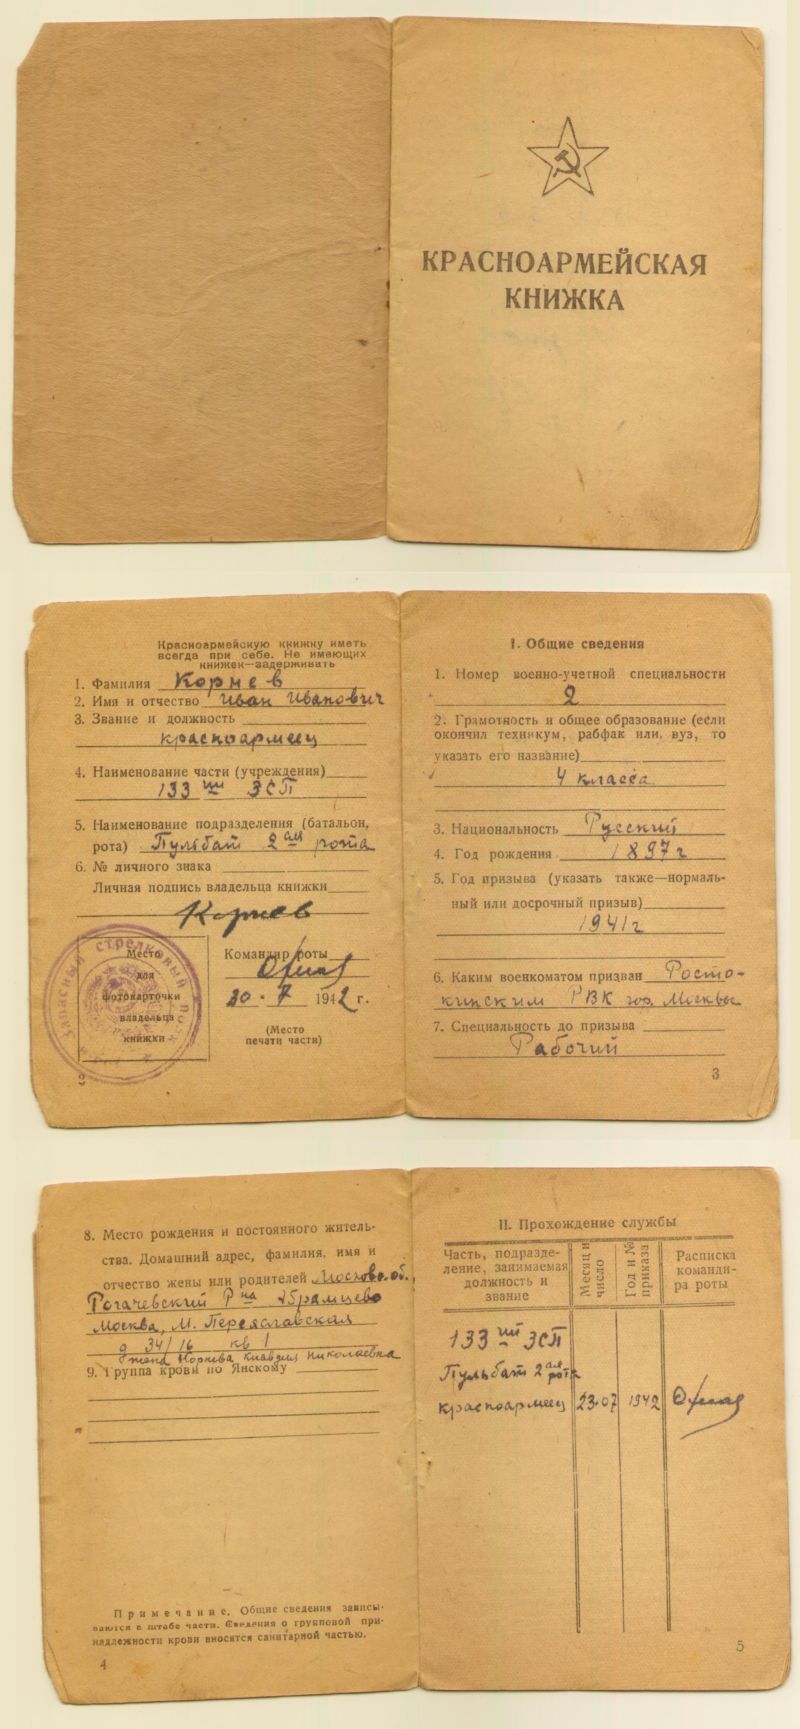 КРАСНОАРМЕЙСКАЯ
КНИЖКА
Красноармейскую книжку иметь
всегда при себе. Не имеющих
книжек—задерживать
1. Фамилия Корнев
2. Имя и отчество Иван Иванович
3. Звание и должность
красноармеец
4. Наименование части (учреждения)
133 ий ЗСП
5. Наименование подразделения (батальон,
рота) Пульбат 2 ая рота
6. № личного знака
Личная подпись владельца книжки
Корнев
запасный стрелковый полк
Место
для
фотокарточки
владельца
книжки
Командир роты
30. 7 1942 г.
(Место
печати части)
2
I. Общие сведения
1. Номер военно-учетной специальности
2
2. Грамотность и общее образование (если
окончил техникум, рабфак или вуз, то
указать его название)
4 класса
3. Национальность Русский
4. Год рождения 1897 г
5. Год призыва (указать также—нормаль-
ный или досрочный призыв)
1941 г
6. Каким военкоматом призван Росто-
кинским РВК гор. Москвы
7. Специальность до призыва
Рабочий
3
8. Место рождения и постоянного житель-
ства. Домашний адрес, фамилия, имя и
отчество жены или родителей Московс. об.,
Рогачевский Р на Абрамцево
Москва, М. Переяславская
д 34/16 кв 1
Жена Корнева Клавдия Николаевна
9. Группа крови по Янскому
Примечание. Общие сведения записы-
ваются в штабе части. Сведения о групповой при-
надлежности крови вносятся санитарной частью.
4
II. Прохождение службы
Часть, подразде-
ление, занимаемая
должность и
звание
Месяц и
число
Год и №
приказа
Расписка
команди-
ра роты
133 ий ЗСП
Пульбат 2 ая рота
красноармеец 23.07 1942
5